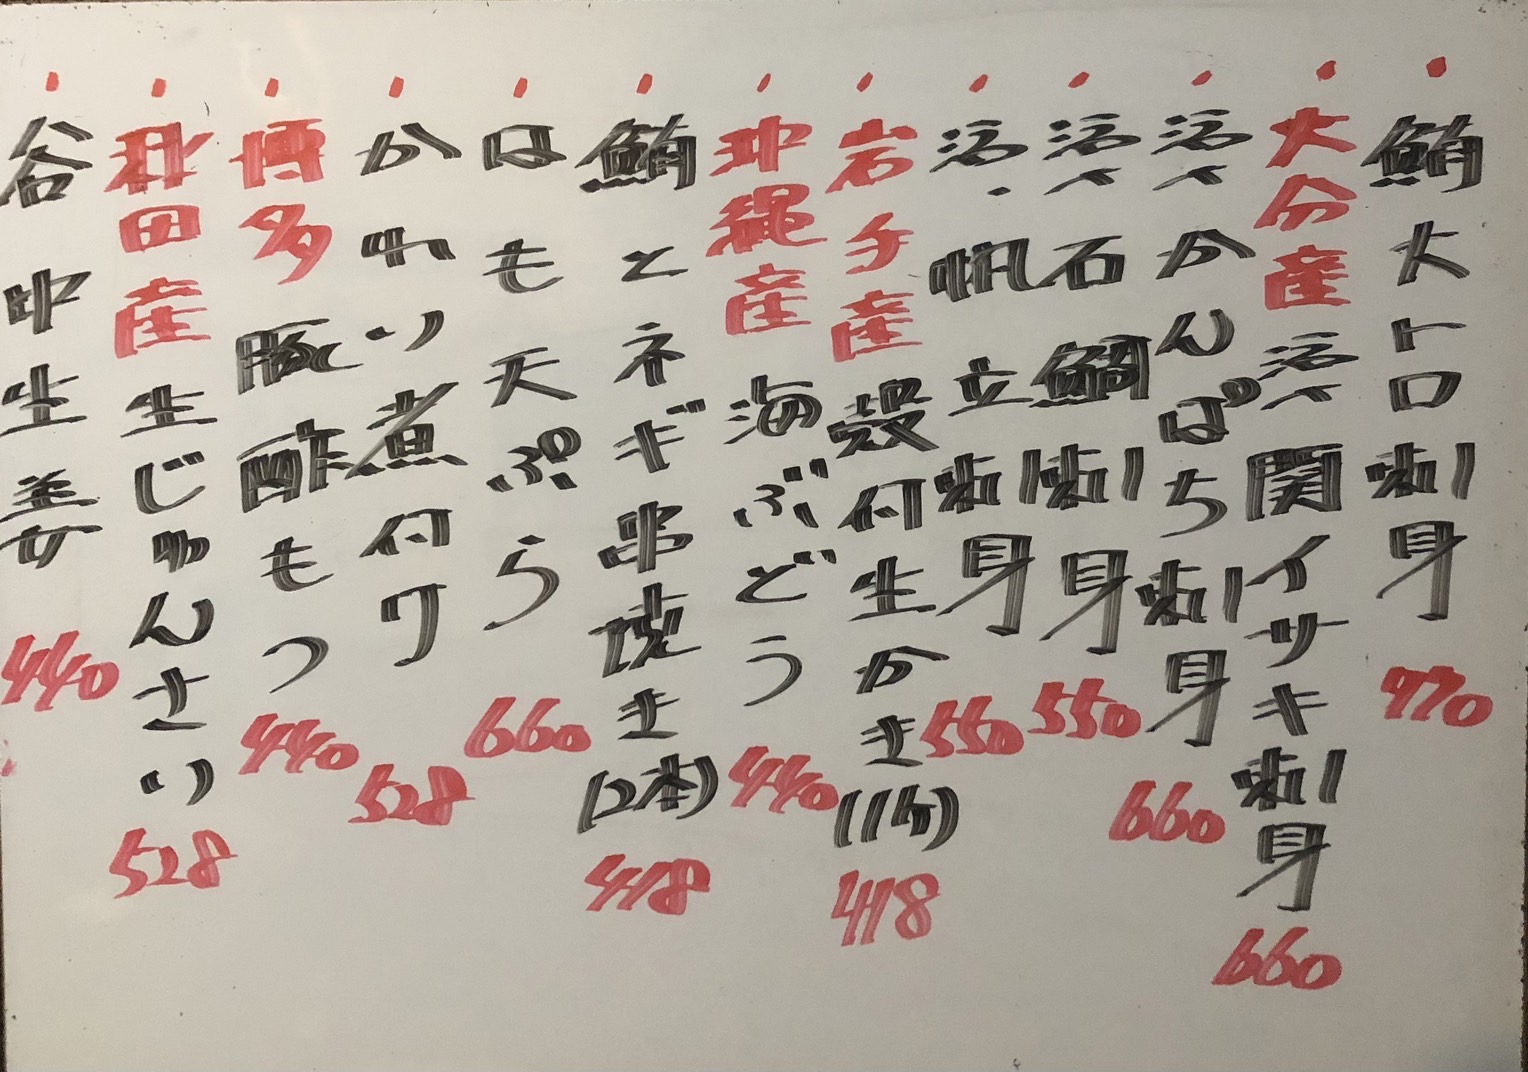 鮪大トロ刺身 770
大分産 活〆関イサキ刺身 660
活〆かんぱち刺身 660
活〆石鯛刺身 550
活・帆立刺身 550
岩手産 殻付生かき(1ケ) 418
沖縄産 海ぶどう 440
鮪とネギ串焼き(2本) 418
はも天ぷら 660
かれい煮付け 528
博多 豚酢もつ 440
秋田産 生じゅんさい 528
谷中生姜 440